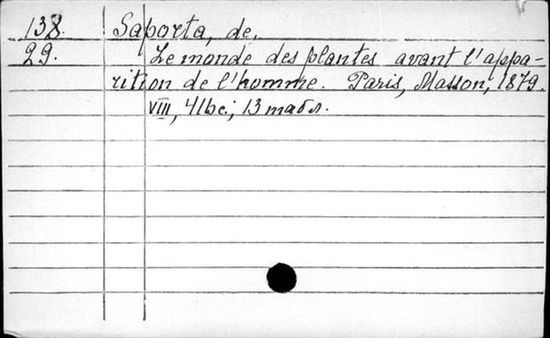 138. Saporta, de.
29. Le monde des plantes avant l'appa-
rition de l'homme. Paris, Masson, 1879.
VIII, 416 c; 13 табл.